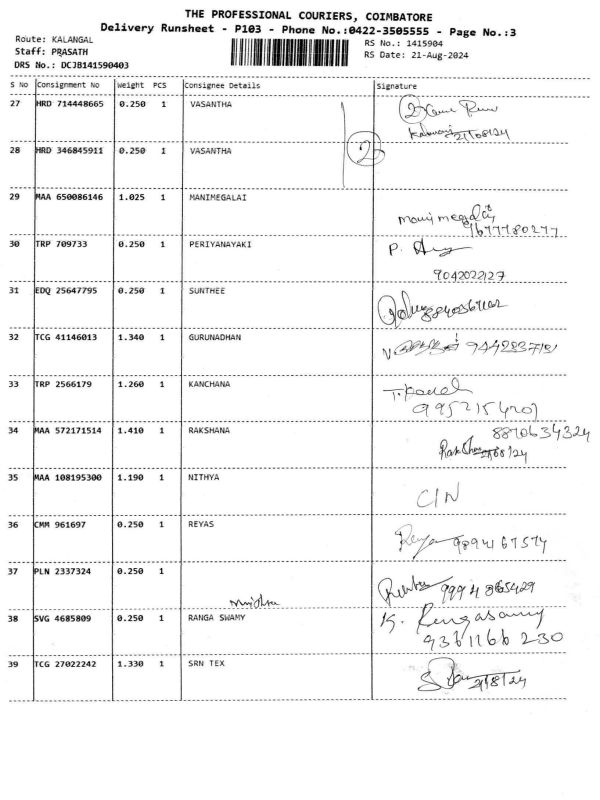 THE PROFESSIONAL COURIERS, COIMBATORE
Delivery Runsheet - P103 - Phone No.:0422-3505555 - Page No.:3
Route: KALANGAL
RS No.: 1415904
Staff: PRASATH
RS Date: 21-Aug-2024
DRS No.: DCJB141590403
S No Consignment No Weight PCS Consignee Details Signature
27 HRD 714448665 0.250 1 VASANTHA
21/08/24
28 HRD 346845911 0.250 1 VASANTHA
2
29 MAA 650086146 1.025 1 MANIMEGALAI
manimegalai
9677780277
30 TRP 709733 0.250 1 PERIYANAYAKI P.
9042022127
31 EDQ 25647795 0.250 1 SUNTHEE
32 TCG 41146013 1.340 1 GURUNADHAN
33 TRP 2566179 1.260 1 KANCHANA
34 MAA 572171514 1.410 1 RAKSHANA 8870634324
21/08/24
35 MAA 108195300 1.190 1 NITHYA
C/N
36 CMM 961697 0.250 1 REYAS
37 PLN 2337324 0.250 1
38 SVG 4685809 0.250 1 RANGA SWAMY K. Rengasamy
9361166230
39 TCG 27022242 1.330 1 SRN TEX
21/8/24